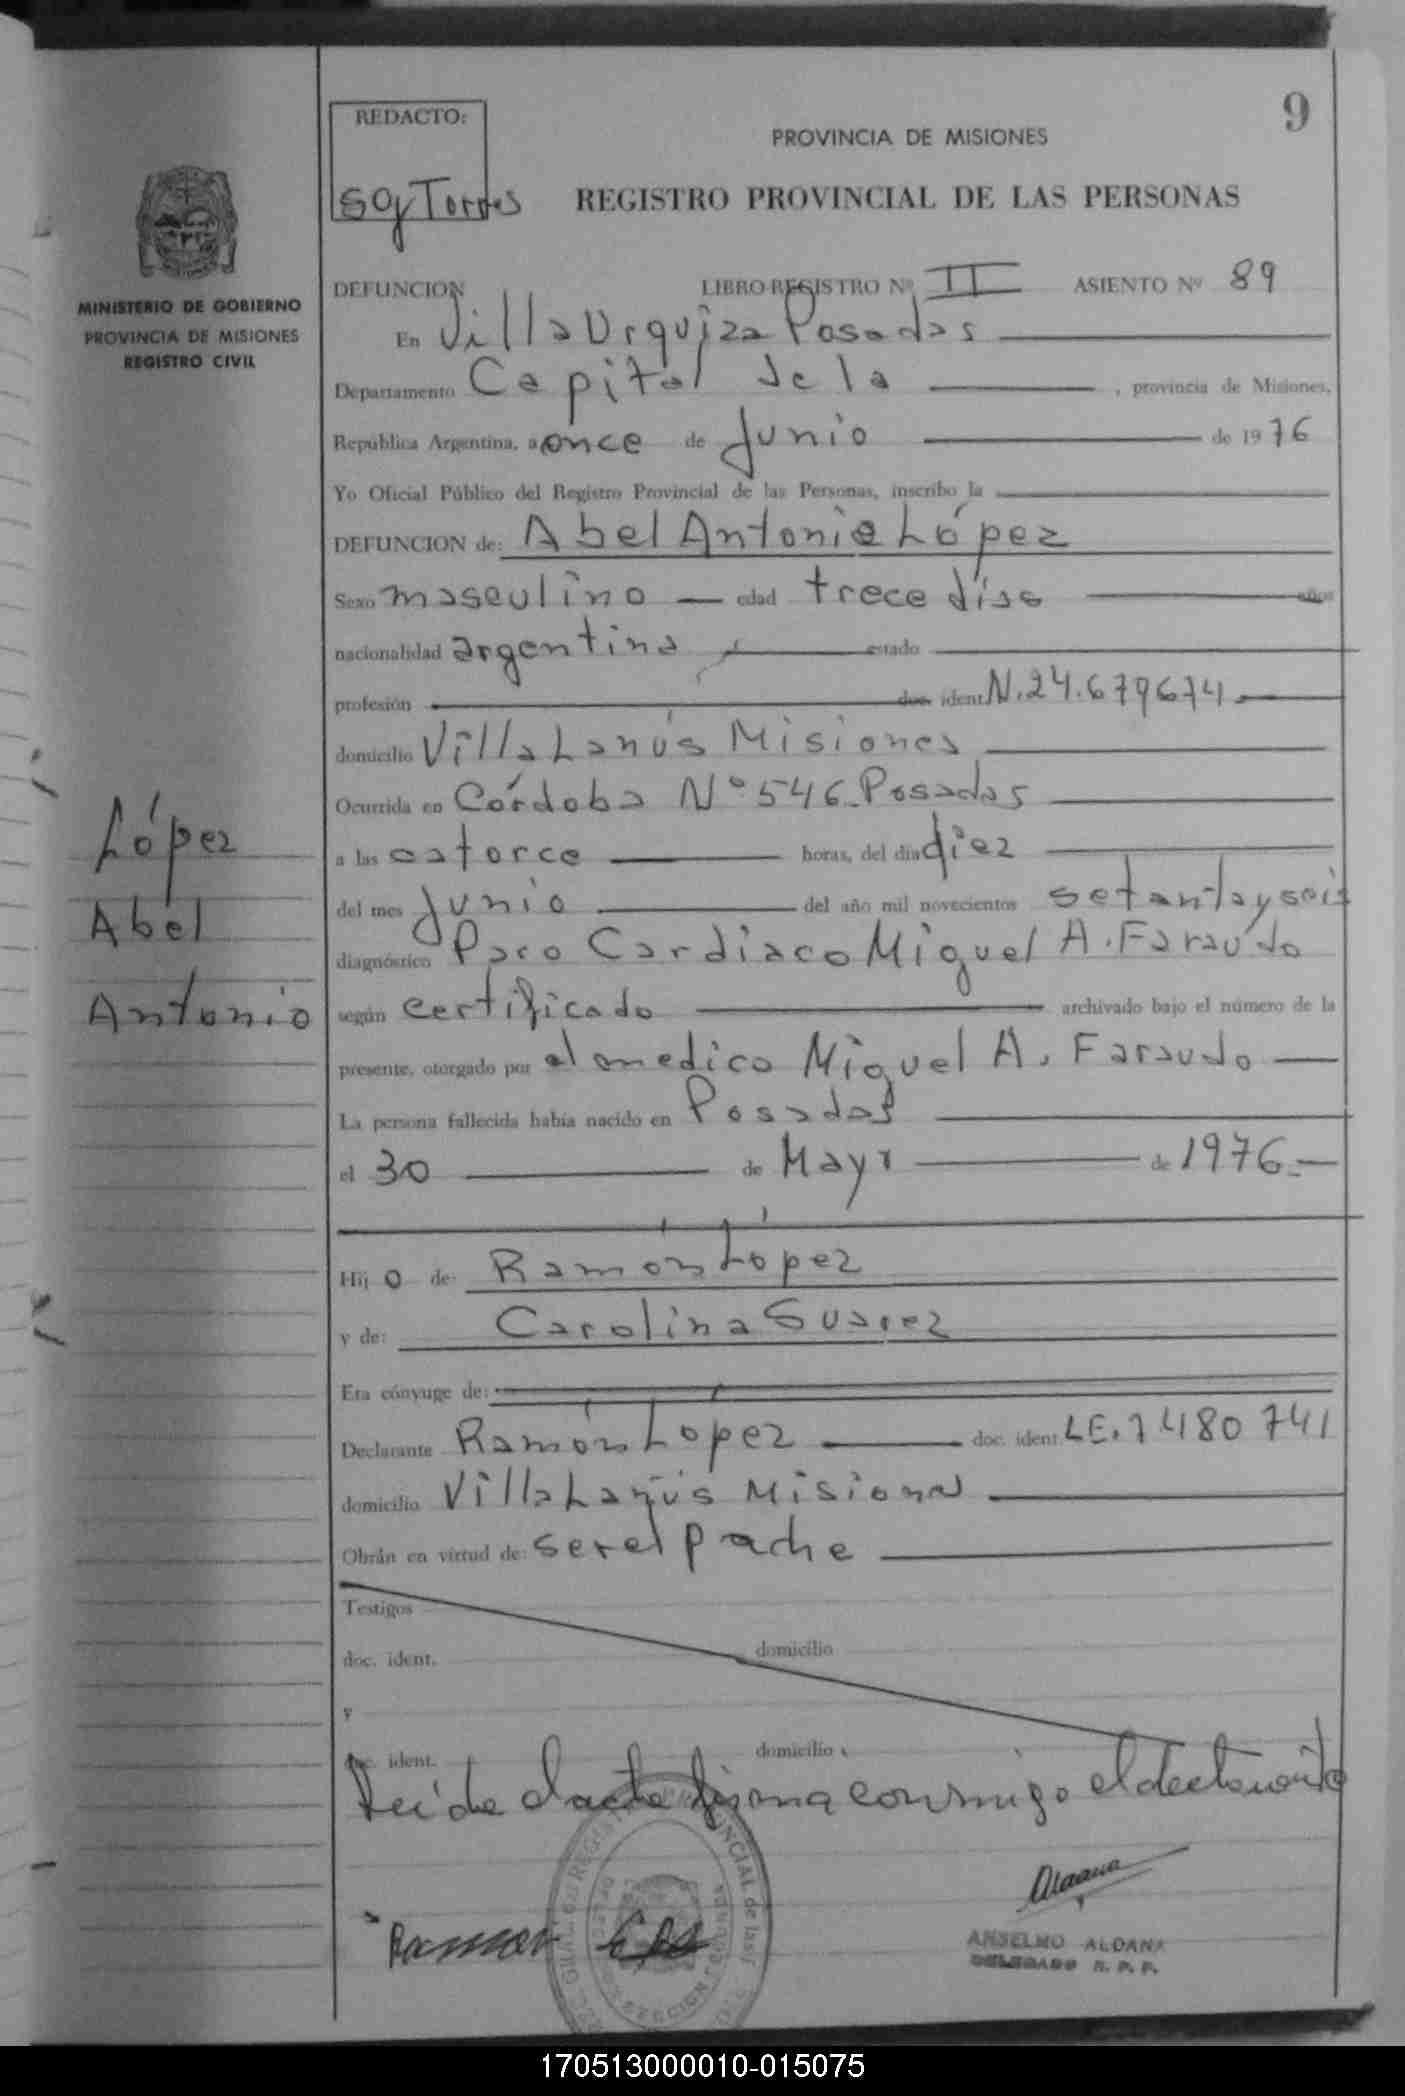 9
REDACTO:
PROVINCIA DE MISIONES
SgTorres
REGISTRO PROVINCIAL DE LAS PERSONAS
MINISTERIO DE GOBIERNO
PROVINCIA DE MISIONES
REGISTRO CIVIL
DEFUNCION LIBRO-REGISTRO Nº II ASIENTO Nº 89
En Villa Urquiza Posadas
Departamento Capital de la , provincia de Misiones,
República Argentina, a once de Junio de 1976
Yo Oficial Público del Registro Provincial de las Personas, inscribo la
DEFUNCION de: Abel Antonio López
Sexo masculino edad trece días años
nacionalidad argentina estado
profesión doc. ident. N.24.679674
domicilio Villa Lanús Misiones
Ocurrida en Córdoba Nº 546 Posadas
a las catorce horas, del día diez
del mes Junio del año mil novecientos setenta y seis
diagnóstico Paro Cardiaco Miguel A. Faraudo
según certificado archivado bajo el número de la
presente, otorgado por el medico Miguel A. Faraudo
La persona fallecida había nacido en Posadas
el 30 de Mayo de 1976.
López
Abel
Antonio
Hijo de: Ramón López
y de: Carolina Suarez
Era cónyuge de:
Declarante Ramón López doc. ident. LE.7480741
domicilio Villa Lanús Misiones
Obrán en virtud de: ser el padre
Testigos
doc. ident. domicilio
y
doc. ident. domicilio
Leída el acta firma conmigo el declarante
Ramon
Aldana
ANSELMO ALDANA
DELEGADO R. P. P.
170513000010-015075